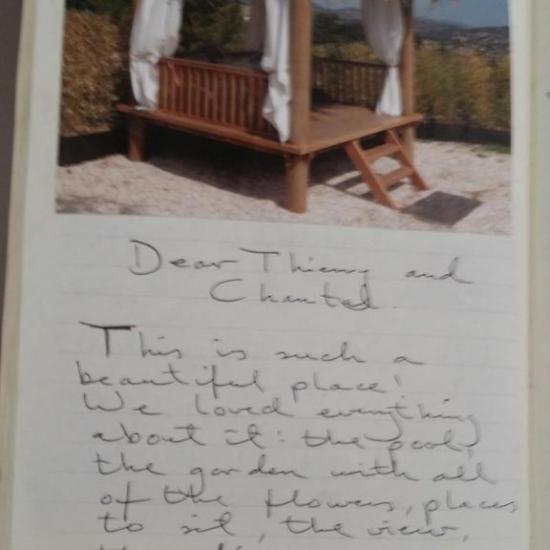 Dear Thierry and
Chantal.
This is such a
beautiful place!
We loved everything
about it: the pool,
the garden with all
of the flowers, places
to sit, the view,